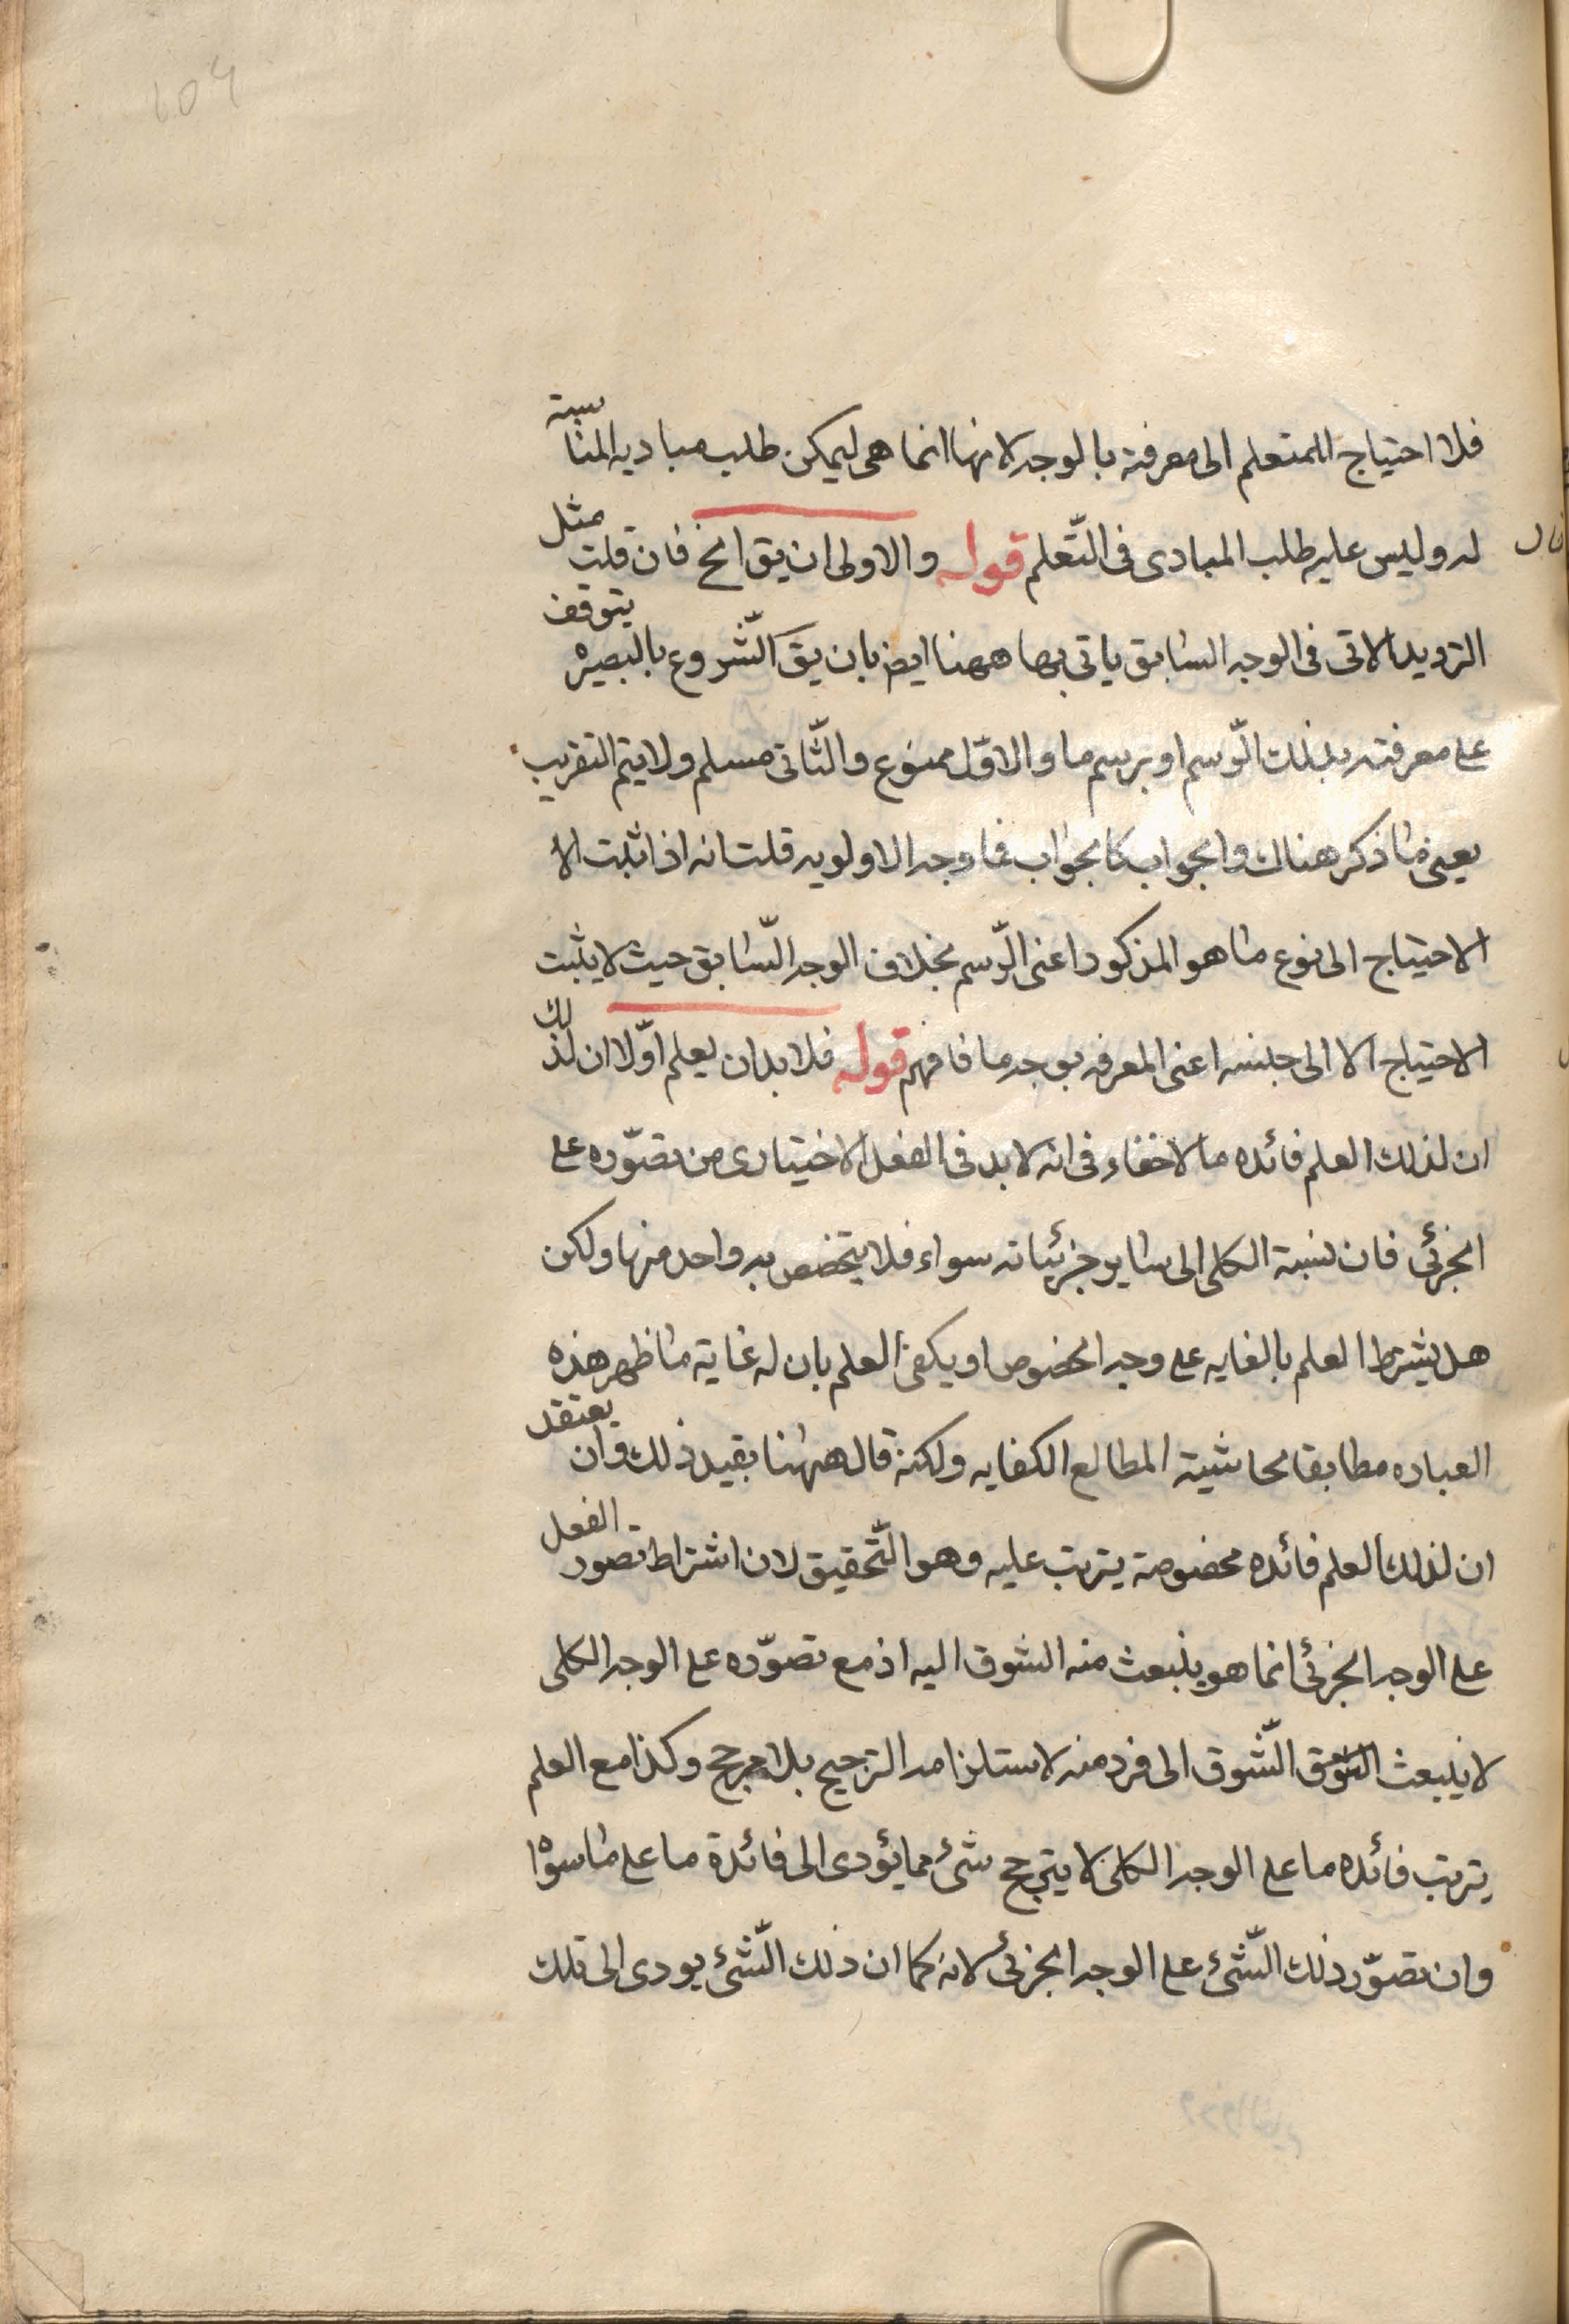 فلا احتياج للمتعلم الى معرفته بالوجه لانها انما هى ليمكن طلب مباديه المناسبة
له وليس عليه طلب المبادى فى التّعلم قوله والاولى ان يق الخ فان قلت مثل
الترديد الاتى فى الوجه السابق ياتى بها ههنا ايض بان يق الشّروع بالبصيره يتوقف
على معرفته بذلك الرّسم او برسم ما والاوّل ممنوع والثّانى مسلم ولا يتم التقريب
يعنى ما ذكر هناك والجواب كالجواب فما وجه الاولويه قلت انه اذا ثبت الا
الاحتياج الى نوع ما هو المذكور اعنى الرّسم بخلاف الوجه السّابق حيث لا يثبت
الاحتياج الا الى جنسه اعنى المعرفه بوجه ما فافهم قوله فلا بد ان يعلم اوّلا ان لذلك
ان لذلك العلم فائده ما لا خفاء فى انه لا بد فى الفعل الاختيارى من تصوّره على
الجزئى فان نسبة الكلى الى ساير جزئياته سواء فلا يتخصص به واحد منها ولكن
هل يشترط العلم بالغايه على وجه الخصوص او يكفى العلم بان له غاية ما ظهر هذه
العباره مطابقا لحاشية المطالع الكفايه ولكنه قال ههنا بقيد ذلك وان يعتقد
ان لذلك العلم فائده مخصوصة يترتب عليه وهو التّحقيق لان اشتراط تصور الفعل
على الوجه الجزئى انما هو ينبعث منه الشوق اليه اذ مع تصوّره على الوجه الكلى
لا ينبعث الشوق الشّوق الى فرد منه لاستلزامه الترجيح بلا مرجح وكذا مع العلم
يترتب فائده ما على الوجه الكلى لا يترجح شئ مما يؤدى الى فائدة ما على ما سواه
وان تصوّر ذلك الشّئ على الوجه الجزئى لانه كما ان ذلك الشّئ يودى الى تلك